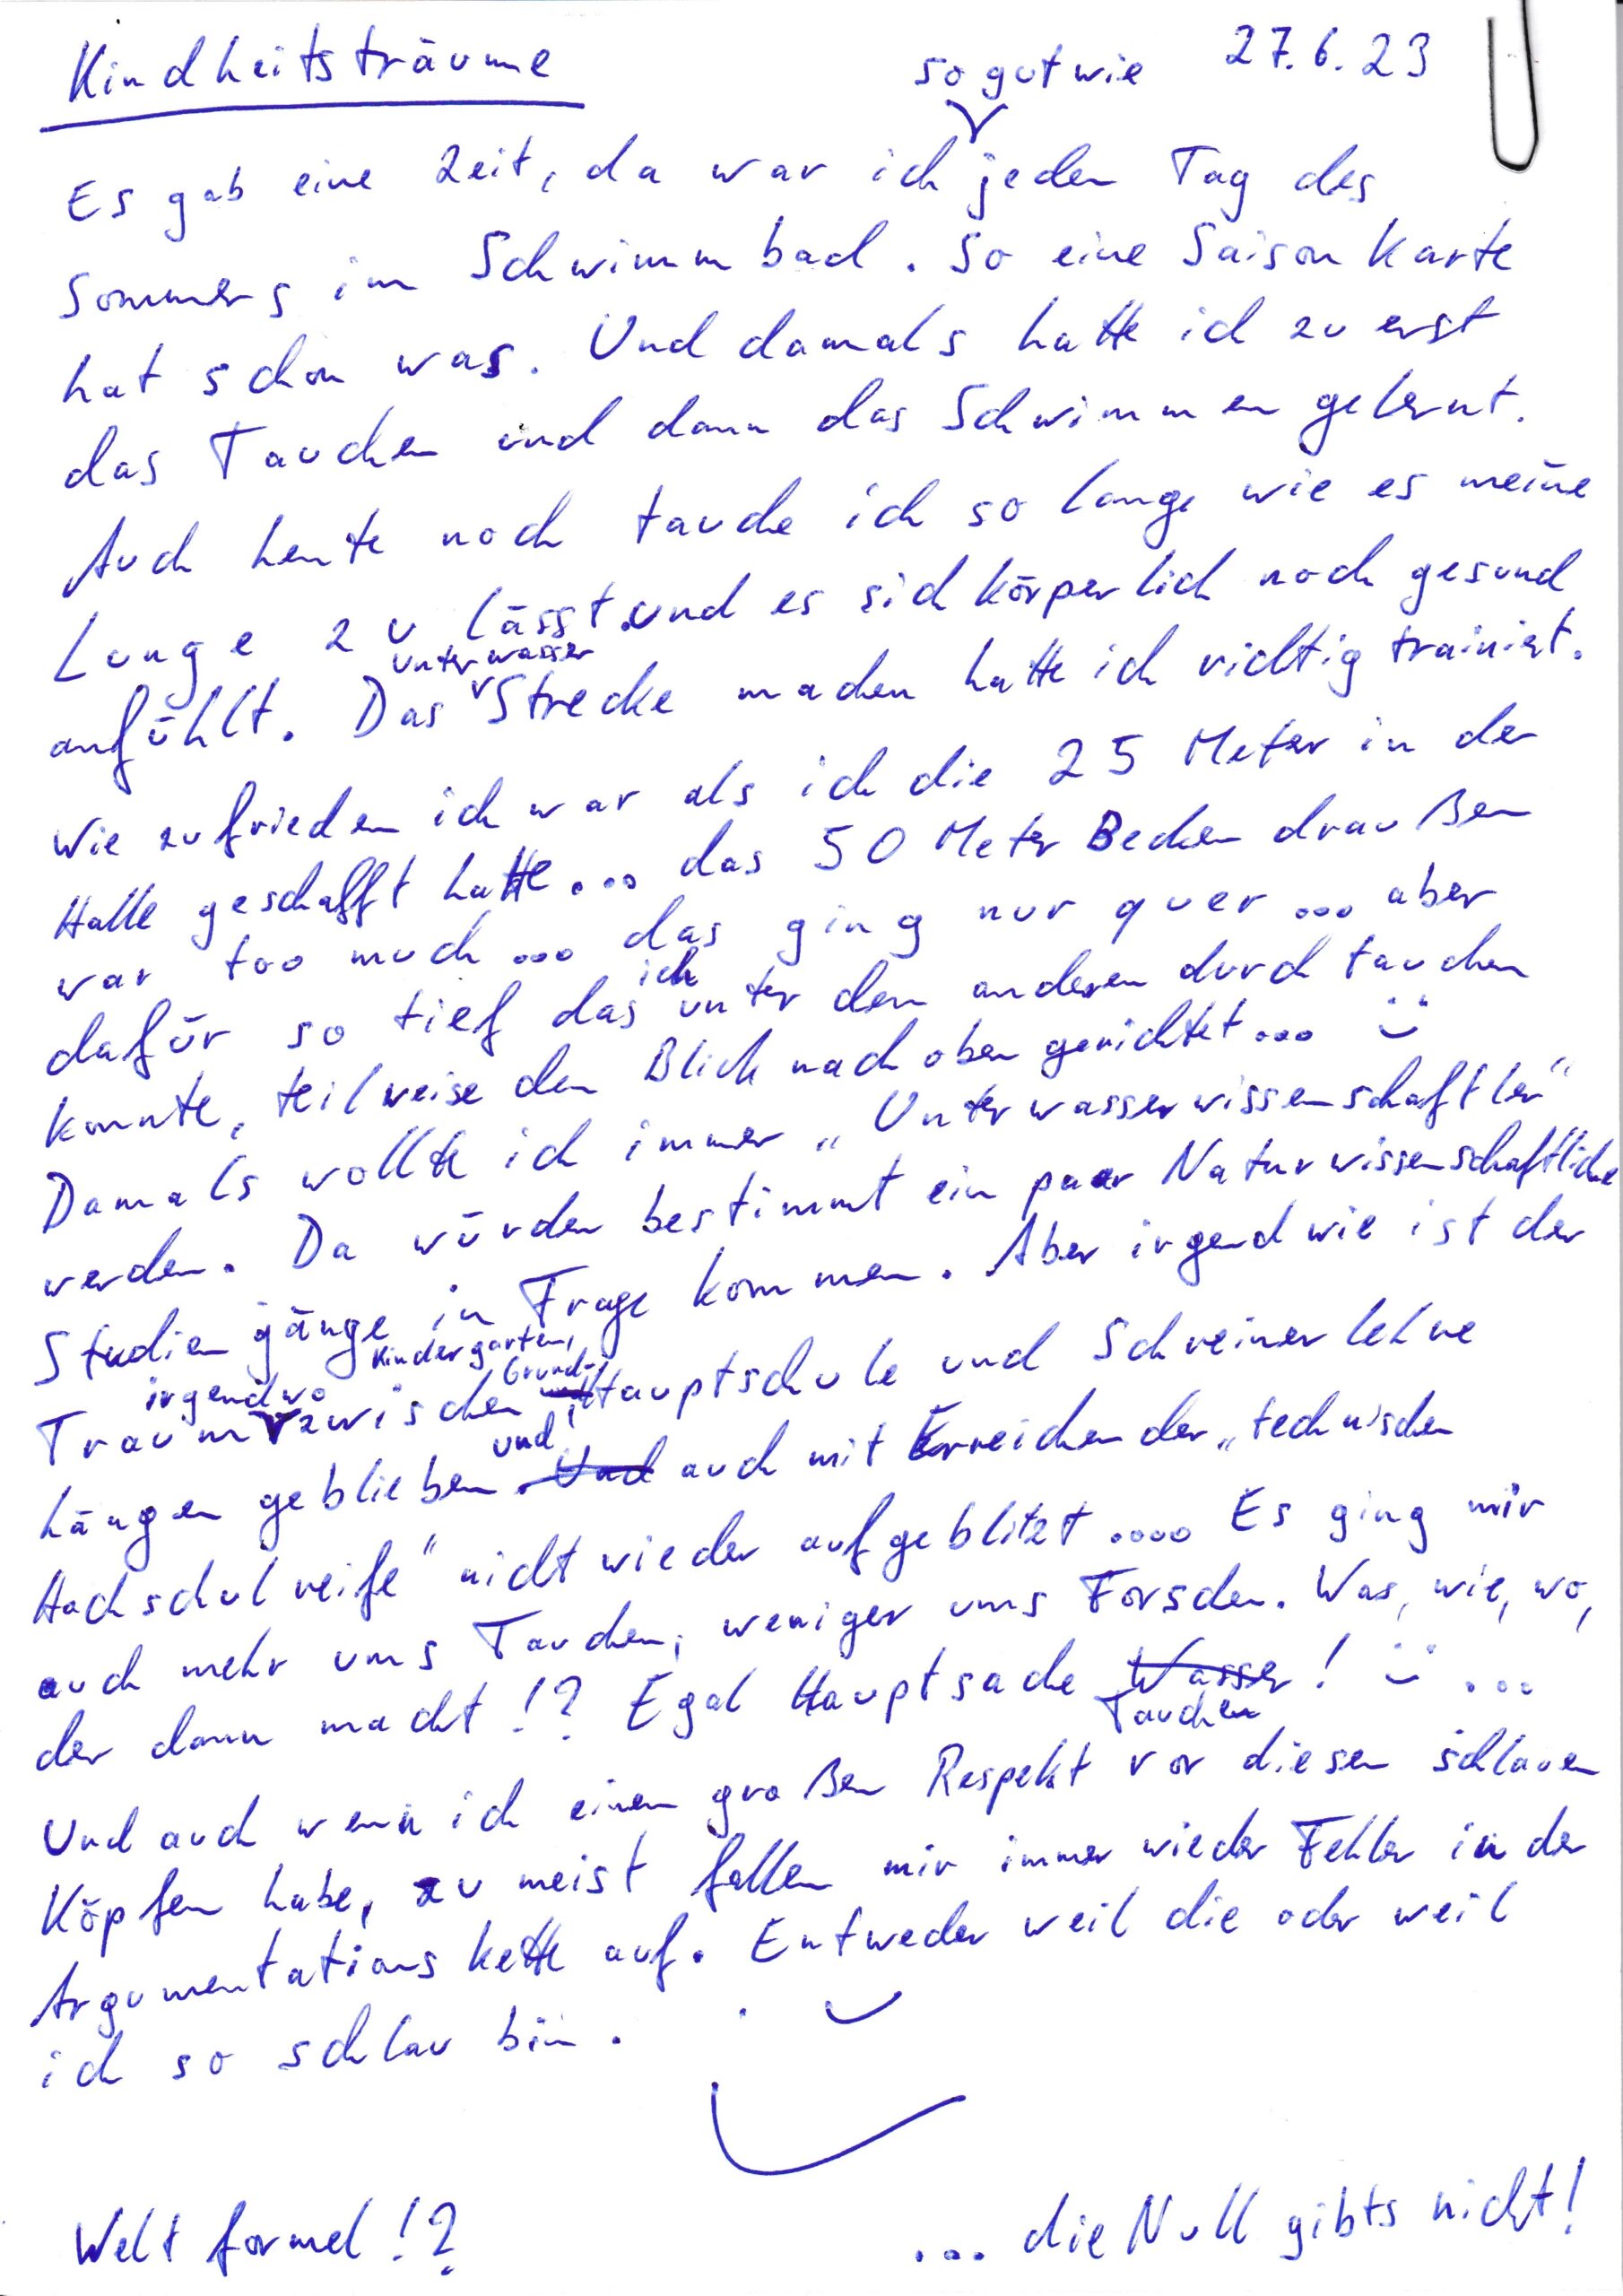 Kindheitsträume
27.6.23
so gut wie
Es gab eine Zeit, da war ich jeden Tag des
Sommers im Schwimmbad. So eine Saisonkarte
hat schon was. Und damals hatte ich zuerst
das Tauchen und dann das Schwimmen gelernt.
Auch heute noch tauche ich so lange wie es meine
Lunge zu lässt und es sich körperlich noch gesund
unterwasser
anfühlt. Das Strecke machen hatte ich richtig trainiert.
Wie zufrieden ich war als ich die 25 Meter in der
Halle geschafft hatte... das 50 Meter Becken draußen
war too much... das ging nur quer... aber
ich
dafür so tief das unter den anderen durch tauchen
konnte, teilweise den Blick nach oben gerichtet...
Damals wollte ich immer „Unterwasserwissenschaftler“
werden. Da würden bestimmt ein paar Naturwissenschaftliche
Studiengänge in Frage kommen. Aber irgendwie ist der
Kindergarten,
irgendwo Grund-,
Traum zwischen Hauptschule und Schreinerlehre
und
hängen geblieben. Und auch mit Erreichen der „technischen
Hochschulreife“ nicht wieder aufgeblitzt.... Es ging mir
auch mehr ums Tauchen, weniger ums Forschen. Was, wie, wo,
der dann macht!? Egal Hauptsache Wasser! ...
Tauchen
Und auch wenn ich einen großen Respekt vor diesen schlauen
Köpfen habe, zu meist fallen mir immer wieder Fehler in der
Argumentationskette auf. Entweder weil die oder weil
ich so schlau bin.
Welt formel!?
... die Null gibts nicht!